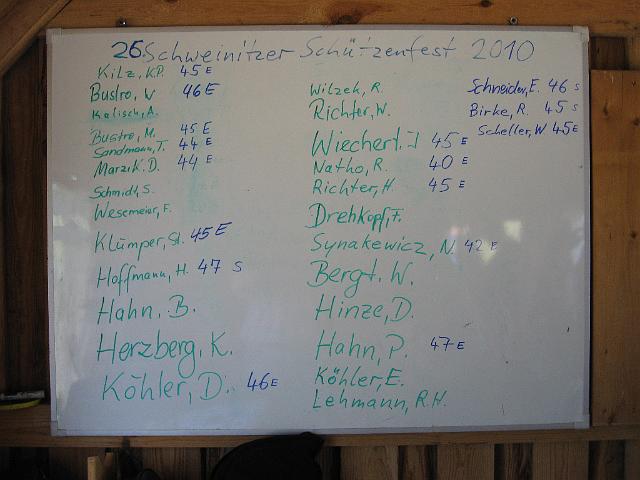 26. Schweinitzer Schützenfest 2010
Kilz, K.P. 45 E
Bustro, W 46 E
Kalisch, A.
Bustro, M. 45 E
Sandmann, T. 44 E
Marzik. D. 44 E
Schmidt, S.
Wesemeier, F.
Klümper, St. 45 E
Hoffmann, H. 47 S
Hahn, B.
Herzberg, K.
Köhler, D. 46 E
Wilzek, R.
Richter, W.
Wiechert, I 45 E
Natho, R. 40 E
Richter, H. 45 E
Drehkopf, F.
Synakewicz, N. 42 E
Bergt, W.
Hinze, D.
Hahn, P. 47 E
Köhler, E.
Lehmann, R.H.
Schneider, E. 46 S
Birke, R. 45 S
Scheller, W 45 E